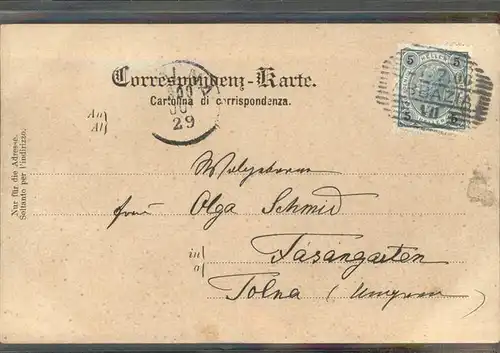 Correspondenz-Karte.
Cartolina di corrispondenza.
An
Al
Nur für die Adresse.
Soltanto per l'indirizzo.
5 HELLER 5
5 5
29
Olga Schmid
in
a
Fásángarten
Tolna (Ungarn)